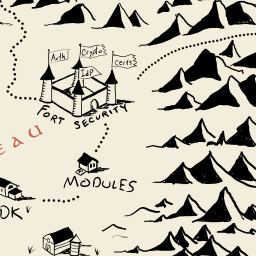 Auth
Crypto
Certs
IdP
FORT SECURITY
EAU
MODULES
OK